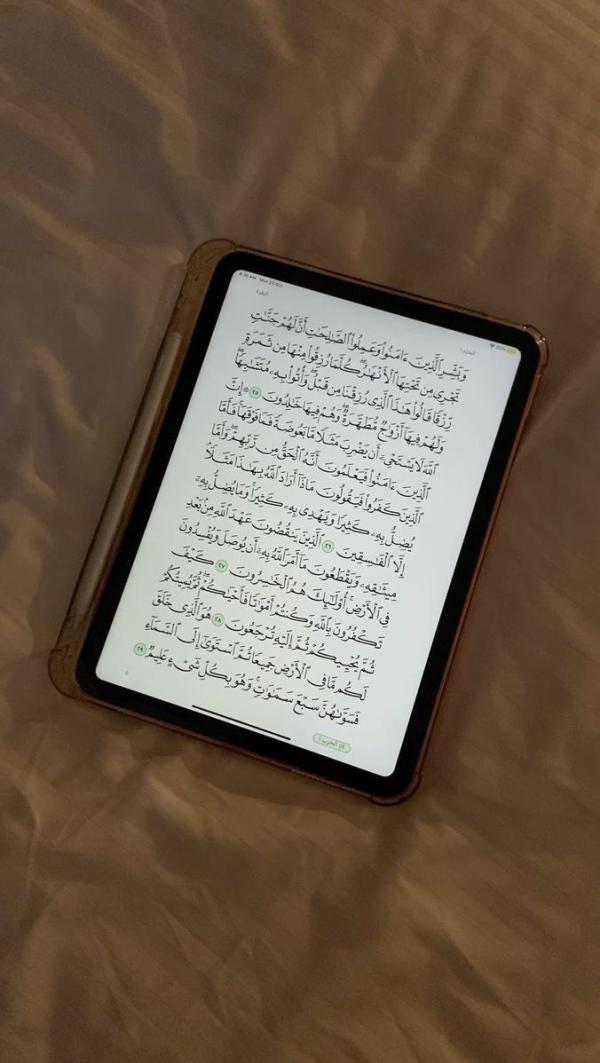 4:36 AM Mon 23 Oct
البقرة
الجزء ١
وَبَشِّرِ ٱلَّذِينَ ءَامَنُوا۟ وَعَمِلُوا۟ ٱلصَّـٰلِحَـٰتِ أَنَّ لَهُمْ جَنَّـٰتٍ
تَجْرِى مِن تَحْتِهَا ٱلْأَنْهَـٰرُ ۖ كُلَّمَا رُزِقُوا۟ مِنْهَا مِن ثَمَرَةٍ
رِّزْقًا ۙ قَالُوا۟ هَـٰذَا ٱلَّذِى رُزِقْنَا مِن قَبْلُ ۖ وَأُتُوا۟ بِهِۦ مُتَشَـٰبِهًا ۖ
وَلَهُمْ فِيهَآ أَزْوَٰجٌ مُّطَهَّرَةٌ ۖ وَهُمْ فِيهَا خَـٰلِدُونَ ٢٥ ۞ إِنَّ
ٱللَّهَ لَا يَسْتَحْىِۦٓ أَن يَضْرِبَ مَثَلًا مَّا بَعُوضَةً فَمَا فَوْقَهَا ۚ فَأَمَّا
ٱلَّذِينَ ءَامَنُوا۟ فَيَعْلَمُونَ أَنَّهُ ٱلْحَقُّ مِن رَّبِّهِمْ ۖ وَأَمَّا
ٱلَّذِينَ كَفَرُوا۟ فَيَقُولُونَ مَاذَآ أَرَادَ ٱللَّهُ بِهَـٰذَا مَثَلًا ۘ
يُضِلُّ بِهِۦ كَثِيرًا وَيَهْدِى بِهِۦ كَثِيرًا ۚ وَمَا يُضِلُّ بِهِۦٓ
إِلَّا ٱلْفَـٰسِقِينَ ٢٦ ٱلَّذِينَ يَنقُضُونَ عَهْدَ ٱللَّهِ مِنۢ بَعْدِ
مِيثَـٰقِهِۦ وَيَقْطَعُونَ مَآ أَمَرَ ٱللَّهُ بِهِۦٓ أَن يُوصَلَ وَيُفْسِدُونَ
فِى ٱلْأَرْضِ ۚ أُو۟لَـٰٓئِكَ هُمُ ٱلْخَـٰسِرُونَ ٢٧ كَيْفَ
تَكْفُرُونَ بِٱللَّهِ وَكُنتُمْ أَمْوَٰتًا فَأَحْيَـٰكُمْ ۖ ثُمَّ يُمِيتُكُمْ
ثُمَّ يُحْيِيكُمْ ثُمَّ إِلَيْهِ تُرْجَعُونَ ٢٨ هُوَ ٱلَّذِى خَلَقَ
لَكُم مَّا فِى ٱلْأَرْضِ جَمِيعًا ثُمَّ ٱسْتَوَىٰٓ إِلَى ٱلسَّمَآءِ
فَسَوَّىٰهُنَّ سَبْعَ سَمَـٰوَٰتٍ ۚ وَهُوَ بِكُلِّ شَىْءٍ عَلِيمٌ ٢٩
٥